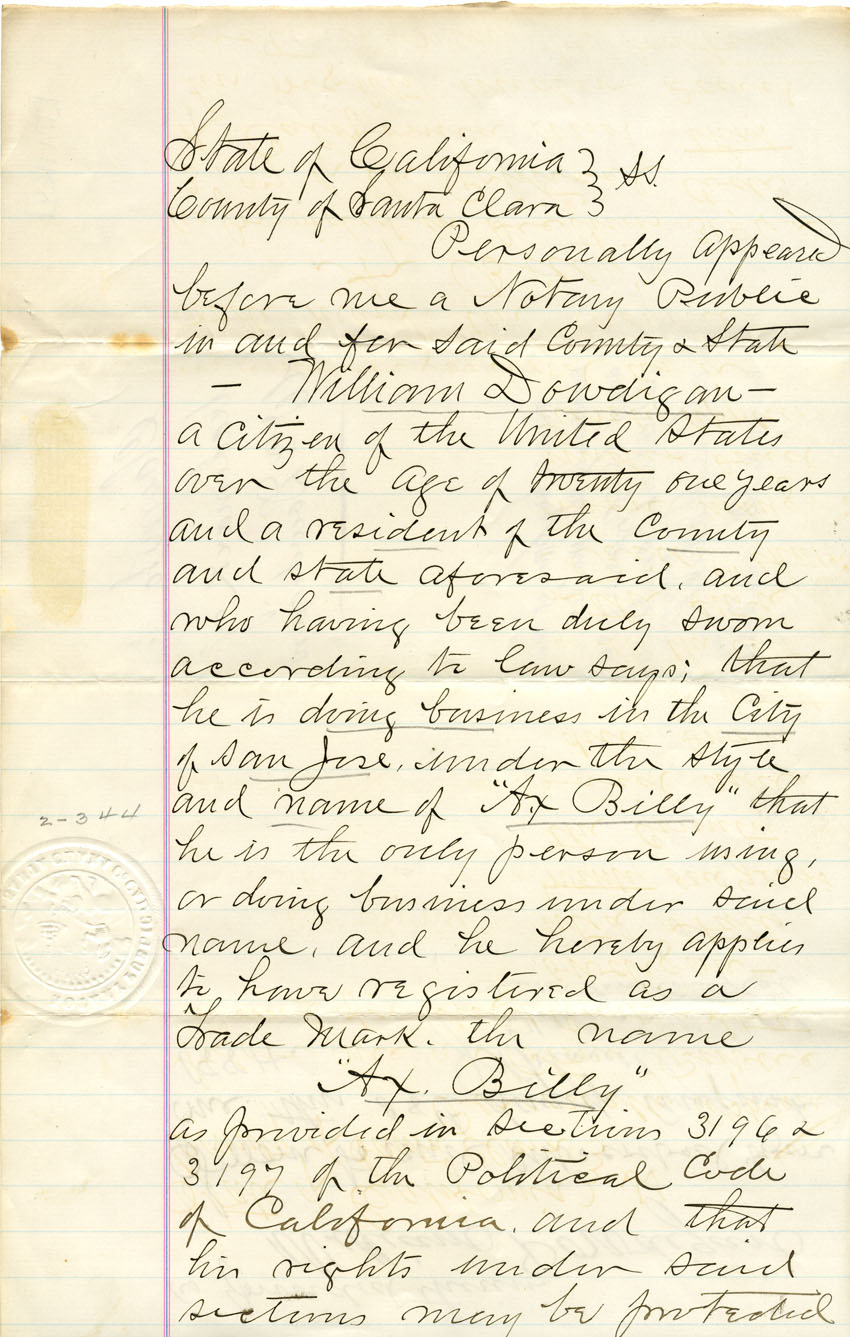 State of California } ss.
County of Santa Clara }
Personally appeared
before me a Notary Public
in and for said County & State
— William Dowdigan —
a citizen of the United States
over the age of twenty one years
and a resident of the County
and state aforesaid, and
who having been duly sworn
according to law says; that
he is doing business in the City
of San Jose, under the style
and name of "Ax Billy" that
he is the only person using,
or doing business under said
name, and he hereby applies
to have registered as a
Trade Mark. the name
"Ax. Billy"
as provided in sections 3196 &
3197 of the Political Code
of California, and that
his rights under said
sections may be protected
2-344